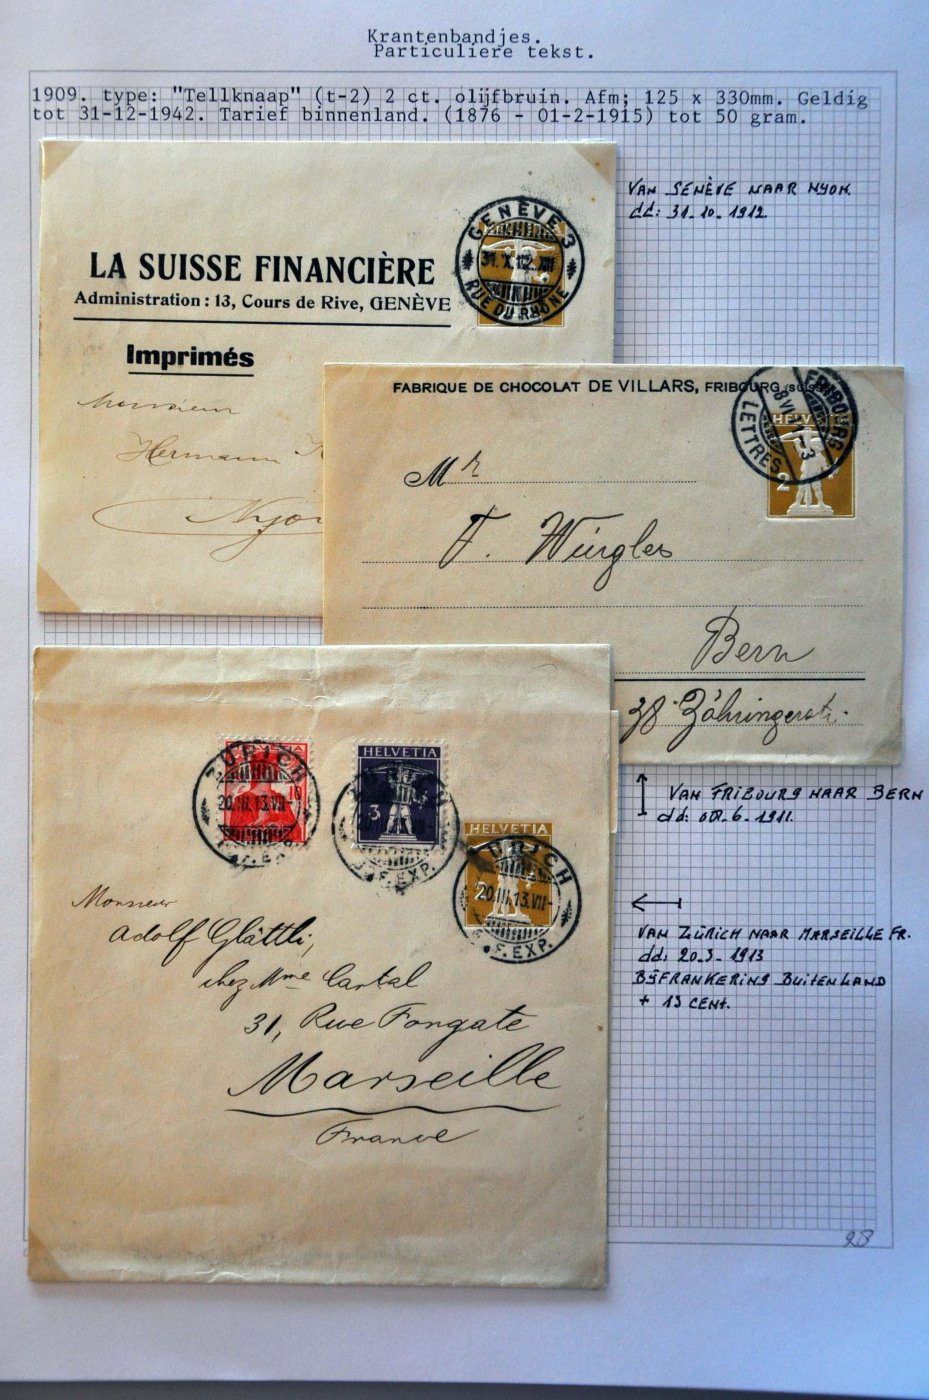 Krantenbandjes.
Particuliere tekst.
1909. type: "Tellknaap" (t-2) 2 ct. olijfbruin. Afm; 125 x 330mm. Geldig
tot 31-12-1942. Tarief binnenland. (1876 - 01-2-1915) tot 50 gram.
VAN GENÈVE NAAR NYON.
dd: 31-10-1912.
GENÈVE 3
31.X.12.
RUE DU RHÔNE
LA SUISSE FINANCIÈRE
Administration : 13, Cours de Rive, GENÈVE
Imprimés
Monsieur
Hermann
Nyon
FABRIQUE DE CHOCOLAT DE VILLARS, FRIBOURG (SUISSE)
FRIBOURG
LETTRES
HELVETIA
2
Mr
F. Würgler
Bern
38 Zähringerstr.
VAN FRIBOURG NAAR BERN
dd: 08-6-1911.
ZÜRICH
20.III.13.VII-
BRF. EXP.
10
HELVETIA
3
ZÜRICH
BRF. EXP.
HELVETIA
ZÜRICH
20.III.13.VII-
BRF. EXP.
Monsieur
Adolf Glättli,
chez Mme Cartal
31, Rue Fongate
Marseille
France
VAN ZÜRICH NAAR MARSEILLE FR.
dd: 20-3-1913
BIJFRANKERING BUITENLAND
+ 13 CENT.
28